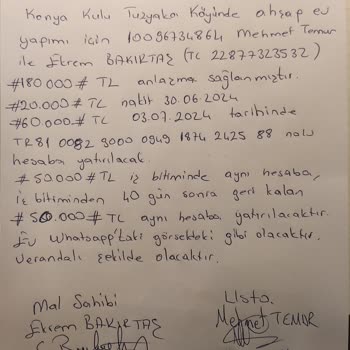 Konya Kulu Tuzyaka Köyünde ahşap ev
yapımı için 10096734864 Mehmet Temur
ile Ekrem BAKIRTAŞ (TC 22877323532)
#180.000# TL anlaşma sağlanmıştır.
#20.000# TL nakit 30.06.2024
#60.000# TC 03.07.2024 tarihinde
TR81 0082 9000 0949 1874 2425 88 nolu
hesaba yatırılacak.
#50.000#TL iş bitiminde aynı hesaba,
iş bitiminden 40 gün sonra geri kalan
#50.000# TC aynı hesaba yatırılacaktır.
Ev Whatsapp'taki görseldeki gibi olacaktır.
Verandalı şekilde olacaktır.
Mal Sahibi
Usta.
Ekrem BAKIRTAŞ
Mehmet TEMUR